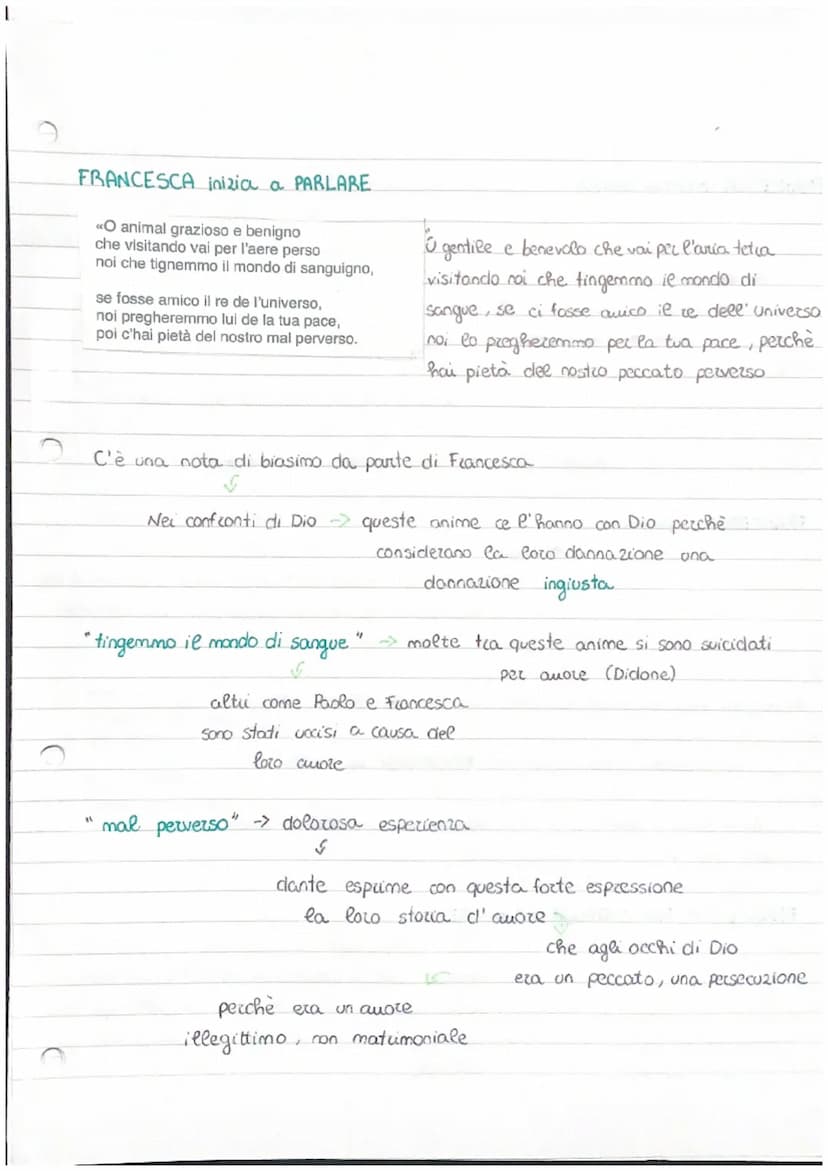 FRANCESCA inizia a PARLARE
«O animal grazioso e benigno
che visitando vai per l'aere perso
noi che tignemmo il mondo di sanguigno,
se fosse amico il re de l'universo,
noi pregheremmo lui de la tua pace,
poi c'hai pietà del nostro mal perverso.
O gentile e benevolo che vai per l'aria tetra
visitando noi che tingemmo il mondo di
sangue, se ci fosse amico il re dell'universo
noi lo pregheremmo per la tua pace, perchè
hai pietà del nostro peccato perverso
C'è una nota di biasimo da parte di Francesca
Nei confronti di Dio → queste anime ce l'hanno con Dio perchè
considerano la loro dannazione una
dannazione ingiusta
"tingemmo il mondo di sangue" → molte tra queste anime si sono suicidati
per amore (Didone)
altri come Paolo e Francesca
sono stati uccisi a causa del
loro amore
"mal perverso" → dolorosa esperienza
dante esprime con questa forte espressione
la loro storia d'amore
che agli occhi di Dio
era un peccato, una persecuzione
perchè era un amore
illegittimo, non matrimoniale